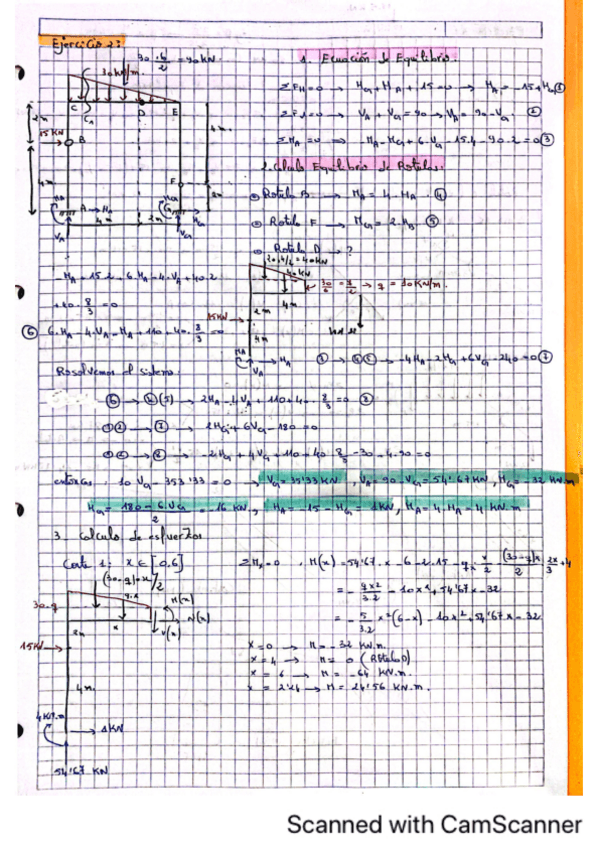 Ejercicio 2:
30·6/2 = 90 KN.
30 KN/m.
1. Ecuación de Equilibrio.
ΣFH=0 → HG + HA + 15 = 0 → HA = -15 + HG ①
ΣFV=0 → VA + VG = 90 → VA = 90 - VG ②
ΣMA=0 ⇒ -MA - MG + 6·VG - 15·4 - 90·2 = 0 ③
C D E
2m
15 KN
B
4m.
F
4m
2m
A → HA
G
HG
4m 2m
VA VG
2. Calculo Equilibrio de Rotulas:
Rotula B → MA = 4·HA. ④
Rotula F → MG = 2·HG ⑤
Rotula D → ?
20·4/2 = 40KN
40 KN
30/6 = q/2 → q = 10 KN/m.
-MA + 15·2 + 6·HA - 4·VA + 40·2
+ 40·8/3 = 0
4m
2m
15KN
4m
⑥ 6·HA - 4·VA - MA + 110 + 40·8/3 = 0
MA → HA
VA
③ → ④⑤ → -4HA - 2HG + 6VG - 240 = 0 ⑦
Resolvemos el sistema:
⑥ → ④(5) → 2HA - 4VA + 110 + 40·8/3 = 0 ⑧
①② → ⑦ → 2HG + 6VG - 180 = 0
①② → ⑧ → -2HG + 4VG + 110 + 40·8/3 - 30 - 4·90 = 0
entonces: 10 VG - 353'33 = 0 → VG = 35'33 KN, VA = 90 - VG = 54'67 KN, MG = -32 KN.m
HG = 180 - 6·VG/2 = -16 KN, HA = -15 - HG = 1KN, MA = 4·HA = 4 KN.m
3. Calculo de esfuerzos
Corte 1: x ∈ [0,6]
(30-q)·x/2
q·x
30-q
M(x)
N(x)
V(x)
x
2m
15KN
4m
4KN.m
1KN
54'67 KN
ΣMx=0, M(x) = 54'67·x - 6 - 2·15 - qx·x/2 - (30-q)x/2·2x/3 + 4
= -qx²/3·2 - 10x² + 54'67x - 32
= -5/3·2 x²(6-x) - 10x² + 54'67x - 32
x = 0 → M = -32 KN.m.
x = 4 → M = 0 (Rótula D)
x = 6 → M = -64 KN.m.
x = 2'24 → M = 24'56 KN.m.
Scanned with CamScanner